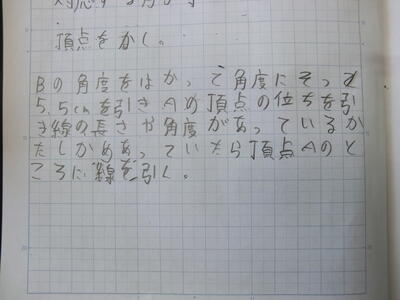 対応する角がす
頂点をかく。
Bの角度をはかって角度にそって
5.5cmを引きAの頂点の位ちを引
き線の長さや角度があっているか
たしかめあっていたら頂点Aのと
ころに線を引く。